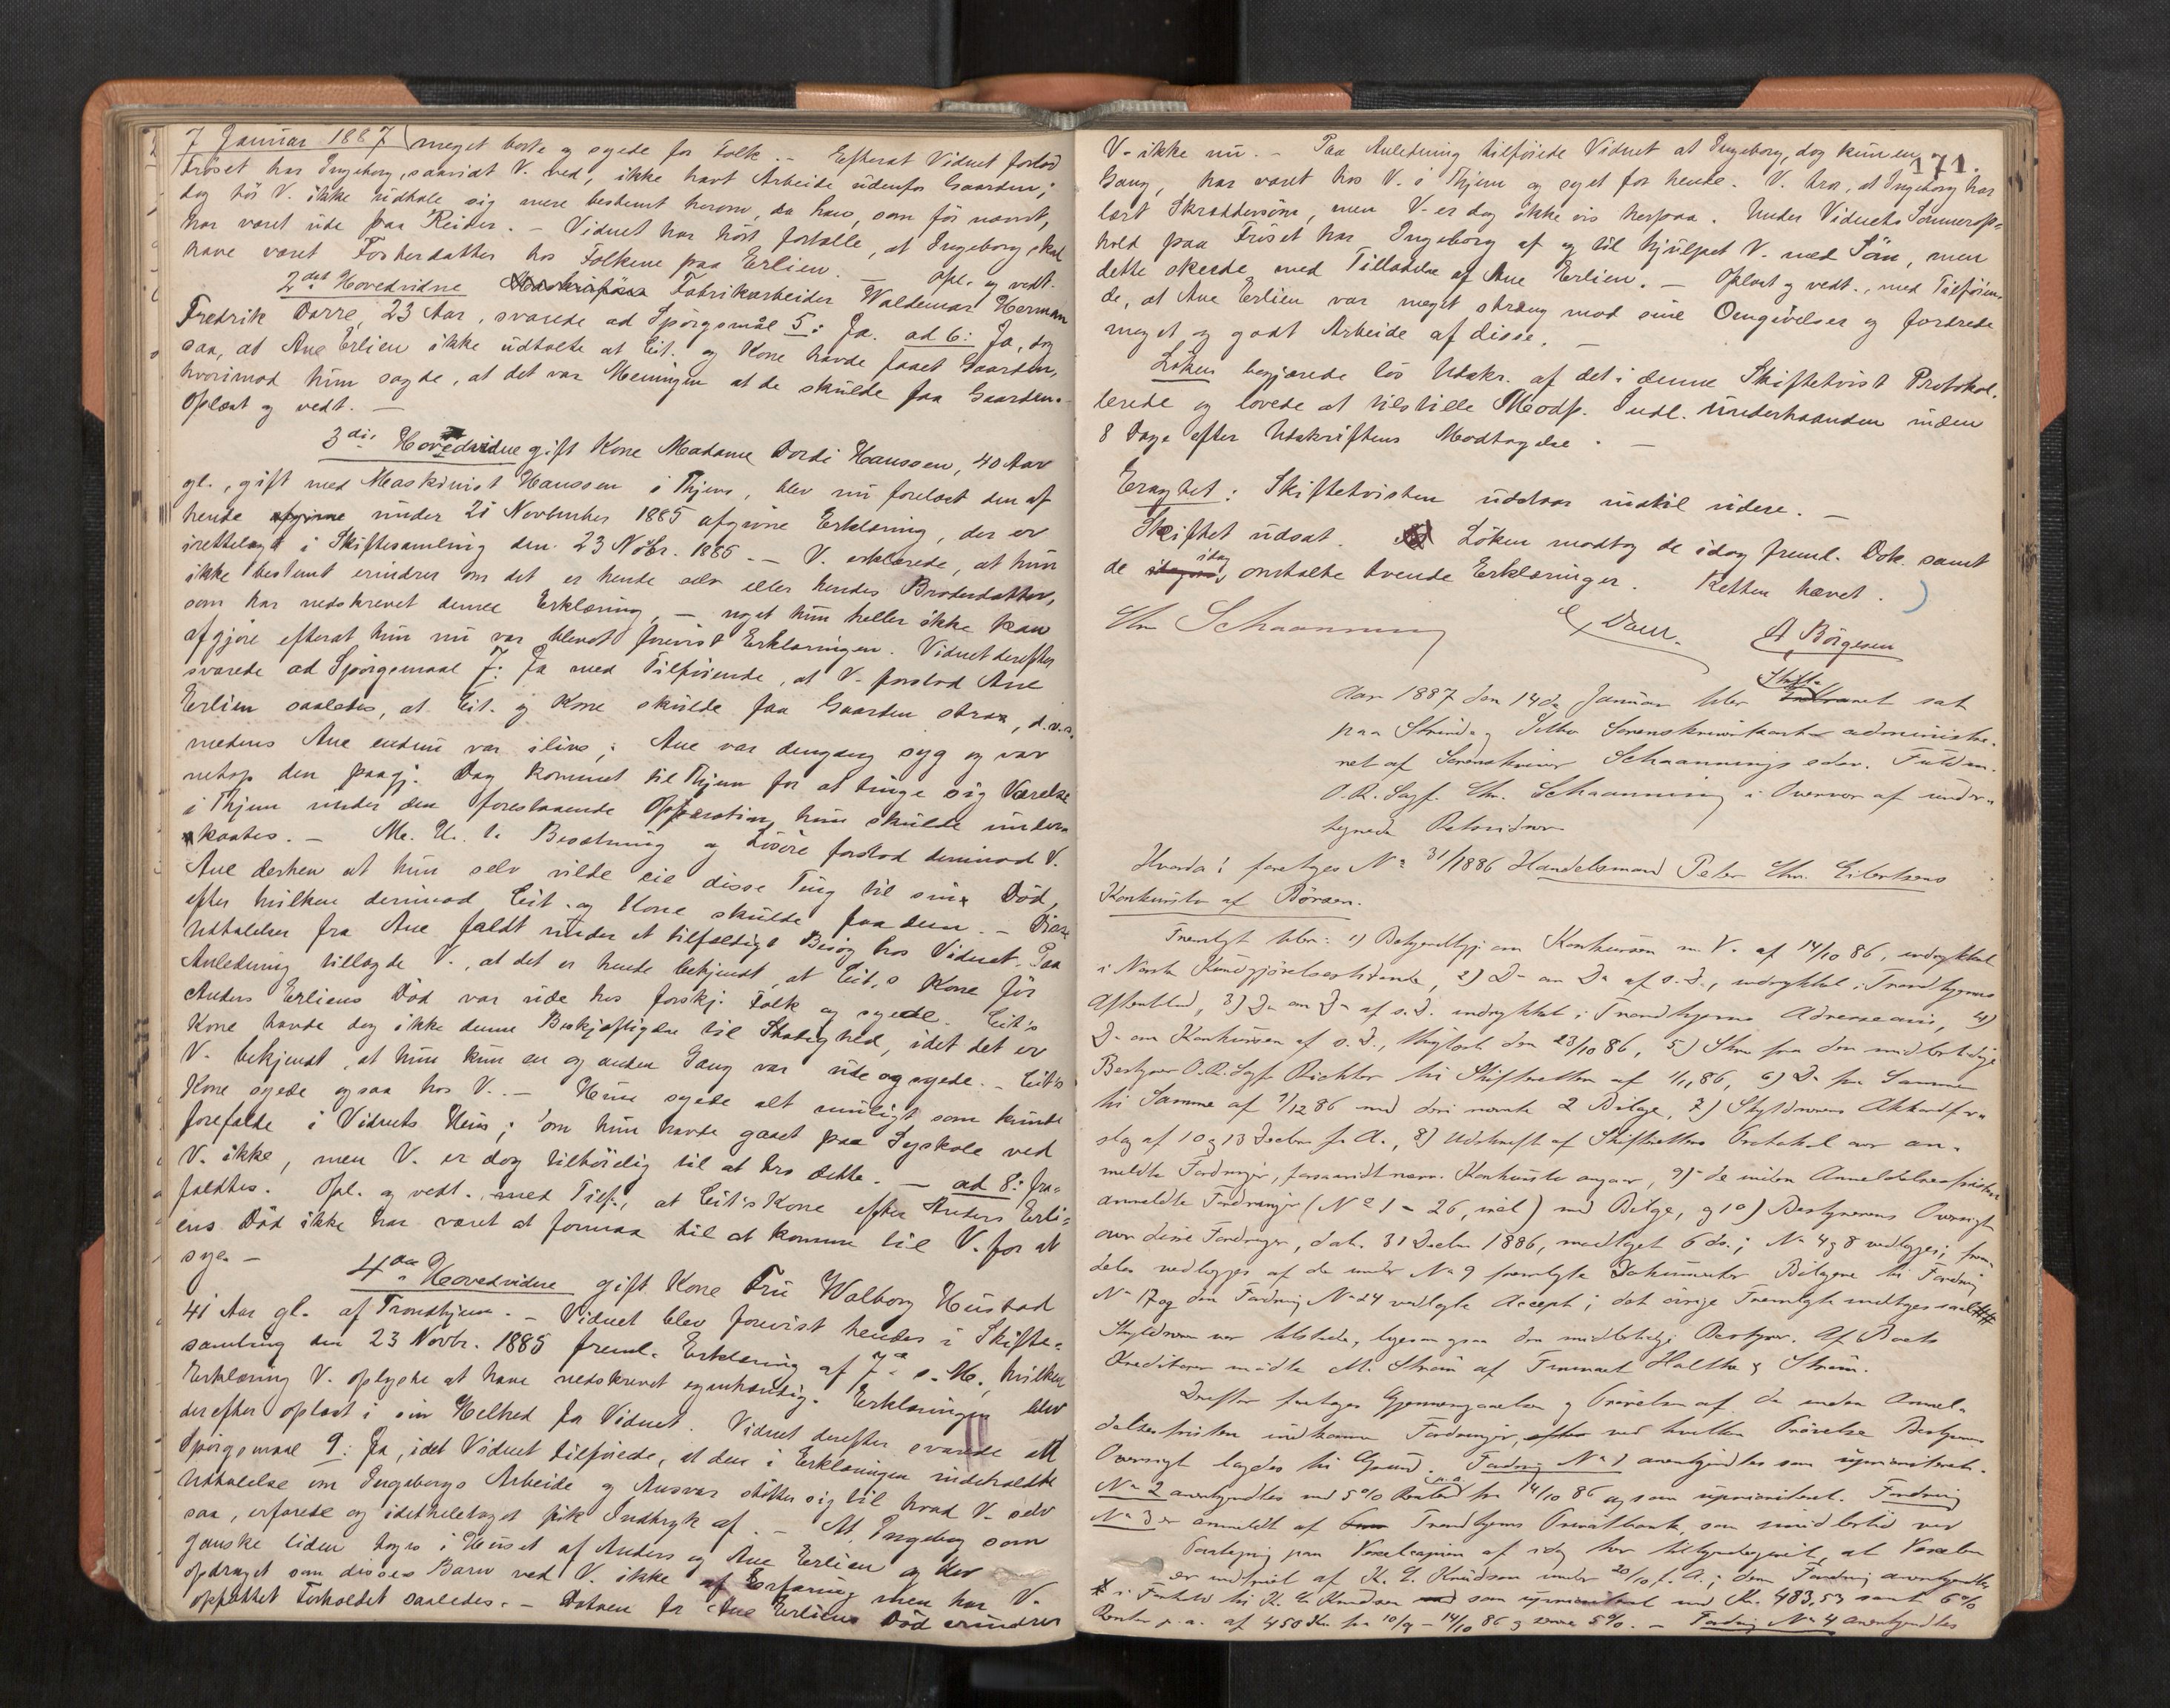 7 Januar 1887 meget borte og syede for Folk. – Efterat Vidnet forlod
Fröset har Ingeborg, saavidt V. ved, ikke havt Arbeide udenfor Gaarden;
dog tör V. ikke udtale sig mere bestemt herom, da hun, som för nævnt,
har været ude paa Reiser. – Vidnet har hört fortælle, at Ingeborg skal
have været Fosterdatter hos Folkene paa Erlien. – Opl. og vedt.
2det Hovedvidne Fabrikarbeider Waldemar Herman
Fredrik Darre, 23 Aar, svarede ad Spörgsmål 5: Ja. ad 6: Ja, dog
saa, at Ane Erlien ikke udtalte at Cit. og Kone havde faaet Gaarden,
hvorimod hun sagde, at det var Meningen at de skulde faa Gaarden.
Oplæst og vedt. –
3die Hovedvidne gift Kone Madame Dordi Hanssen, 40 Aar
gl., gift med Maskinist Hanssen i Thjem, blev nu forelæst den af
hende afgivne under 21 November 1885 afgivne Erklæring, der er
irettelagt i Skiftesamling den 23 Nobr. 1885. – V. erklærede, at hun
ikke bestemt erindrer om det er hende selv eller hendes Broderdatter,
som har nedskrevet denne Erklæring, – noget hun heller ikke kan
afgjöre efterat hun nu var blevet forevist Erklæringen. Vidnet derefter
svarede ad Spörgsmaal 7: Ja med Tilföiende, at V. forstod Ane
Erlien saaledes, at Cit. og Kone skulde faa Gaarden strax, d.v.s.
medens Ane endnu var ilive; Ane var dengang syg og var
netop den paagj. Dag kommet til Thjem for at tinge sig Værelse
i Thjem under den forestaaende Operation, hun skulde under-
kastes. – M. H. t. Besætning og Lösöre forstod derimod V.
Ane derhen at hun selv vilde eie disse Ting til sin Död,
efter hvilken derimod Cit. og Kone skulde faa dem. – Disse
Udtalelser fra Ane faldt under et tilfældigt Besög hos Vidnet. Paa
Anledning tillagde V., at det er hende bekjendt, at Cit.s Kone för
Anders Erliens Död var ude hos forskj. Folk og syede. Cit's
Kone havde dog ikke denne Beskjæftigelse til Stadighed, idet det er
V. bekjendt, at hun kun en og anden Gang var ude og syede. – Cit's
Kone syede ogsaa hos V. – Hun syede alt muligt som kunde
forefalde i Vidnets Hus; om hun havde gaaet paa Syskole ved
V. ikke, men V. er dog tilböielig til at tro dette. – ad 8: fra-
faldtes. Opl. og vedt. med Tilf., at Cit's Kone efter Anders Erli-
ens Död ikke har været at formaa til at komme til V. for at
sye. –
4de Hovedvidne gift Kone Fru Walborg Hustad
41 Aar gl. af Trondhjem. – Vidnet blev forevist hendes i Skifte-
samling den 23 Novbr. 1885 freml. Erklæring af 7de s. M., hvilken
Erklæring V. oplyste at have nedskrevet egenhændig. Erklæringen blev
derefter oplæst i sin Helhed for Vidnet. Vidnet derefter svarede at
Spörgsmaal 9: Ja, idet Vidnet tilföiede, at den i Erklæringen indeholdte
Udtalelse om Ingeborgs Arbeide og Ansvar stötter sig til hvad V. selv
saa, erfarede og idetheletaget fik Indtryk af. – At Ingeborg som
ganske liden toges i Huset af Anders og Ane Erlien og blev
opdraget som disses Barn ved V. ikke af Erfaring men har V.
opfattet Forholdet saaledes. – Datoen for Ane Erliens Död erindrer
171.
V. ikke nu. – Paa Anledning tilföiede Vidnet at Ingeborg, dog kun en
Gang, har været hos V. i Thjem og syet for hende. V. tror, at Ingeborg har
lært Skræddersöm, men V. er dog ikke vis herpaa. Under Vidnets Sommerop-
hold paa Fröset har Ingeborg af og til hjulpet V. med Söm, men
dette skeede med Tilladelse af Ane Erlien. – Oplæst og vedt., med Tilföien-
de, at Ane Erlien var meget streng mod sine Omgivelser og fordrede
meget og godt Arbeide af disse. –
Löken begjærede lös Udskr. af det i denne Skiftetvist Protokol-
lerede og lovede at tilstille Modp. Indl. underhaanden inden
8 Dage efter Udskriftens Modtagelse. –
Eragtet: Skiftetvisten udstaar indtil videre. –
Skiftet udsat. Löken modtog de idag freml. Dok. samt
de idag omtalte tvende Erklæringer. Retten hævet.
Chr Schaanning A Börgesen
Aar 1887 den 14de Januar blev Skifteretten sat
paa Strinda og Selbu Sorenskriverkontor administre-
ret af Sorenskriver Schaannings edsv. Fuldm.
O.R. Sagf. Chr. Schaanning i Overvær af under-
tegnede Retsvidner
Hvorda: foretoges No 31/1886 Handelsmand Peter Chr. Eilertsens
Konkursbo af Börsen.
Fremlagt blev: 1) Bekjendtgj. om Konkursen m. V. af 14/10 86, indrykket
i Norsk Kundgjörelsestidende, 2) Do om Do af s. D., indrykket i Trondhjems
Aftenblad, 3) Do om Do af s. D. indrykket i Trondhjems Adresseavis, 4)
Do om Konkursen af s. D., thinglæst den 23/10 86, 5) Skr. fra den midlertidige
Bestyrer O.R. Sagf. Richter til Skifteretten af 1/11 86, 6) Do fra Samme
til Samme af 9/12 86 med deri nævnte 2 Bilage, 7) Skyldnerens Akkordfor-
slag af 10 og 13 Decbr f. A., 8) Udskrift af Skifterettens Protokol over an-
meldte Fordringer, forsaavidt nærv. Konkursbo angaar, 9) de inden Anmeldelsesfristen
anmeldte Fordringer (No 1 – 26, incl) med Bilage, og 10) Bestyrerens Oversigt
over disse Fordringer, dat. 31 Decbr 1886, modtaget 6 ds.; No 4 og 8 vedlægges; frem-
deles vedlægges af de under No 9 fremlagte Dokumenter Bilagene til Fordring
No 17 og den Fordring No 24 vedlagte Accept; det övrige Fremlagte medtages
Skyldneren var tilstede, ligesom ogsaa den midlertidige Bestyrer. Af Boets
Kreditorer mödte M. Ström af Firmaet Halthe & Ström.
Derefter foretoges Gjennemgaaelsen og Prövelsen af de inden Anmel-
delsesfristen indkomne Fordringer, ved hvilken Prövelse Bestyrerens
Oversigt lagdes til Grund. Fordring No 1 anerkjendtes som uprioriteret.
No 2 anerkjendtes med 5% Renter p.a. fra 14/10 86 og som uprioriteret. Fordring
No 3 er anmeldt af Trondhjems Privatbank, som imidlertid ved
Paategning paa Vexelcopien af idag har tilkjendegivet, at Vexelen
er indfriet af K. L. Knudson under 20/10 f. A.; den Fordring anerkjendtes
i Forhold til K. L. Knudson som uprioriteret med Kr. 483,53 samt 6%
Renter p. a. af 450 Kr. fra 10/9 – 14/10 86 og senere 5%. – Fordring No 4 anerkjendtes